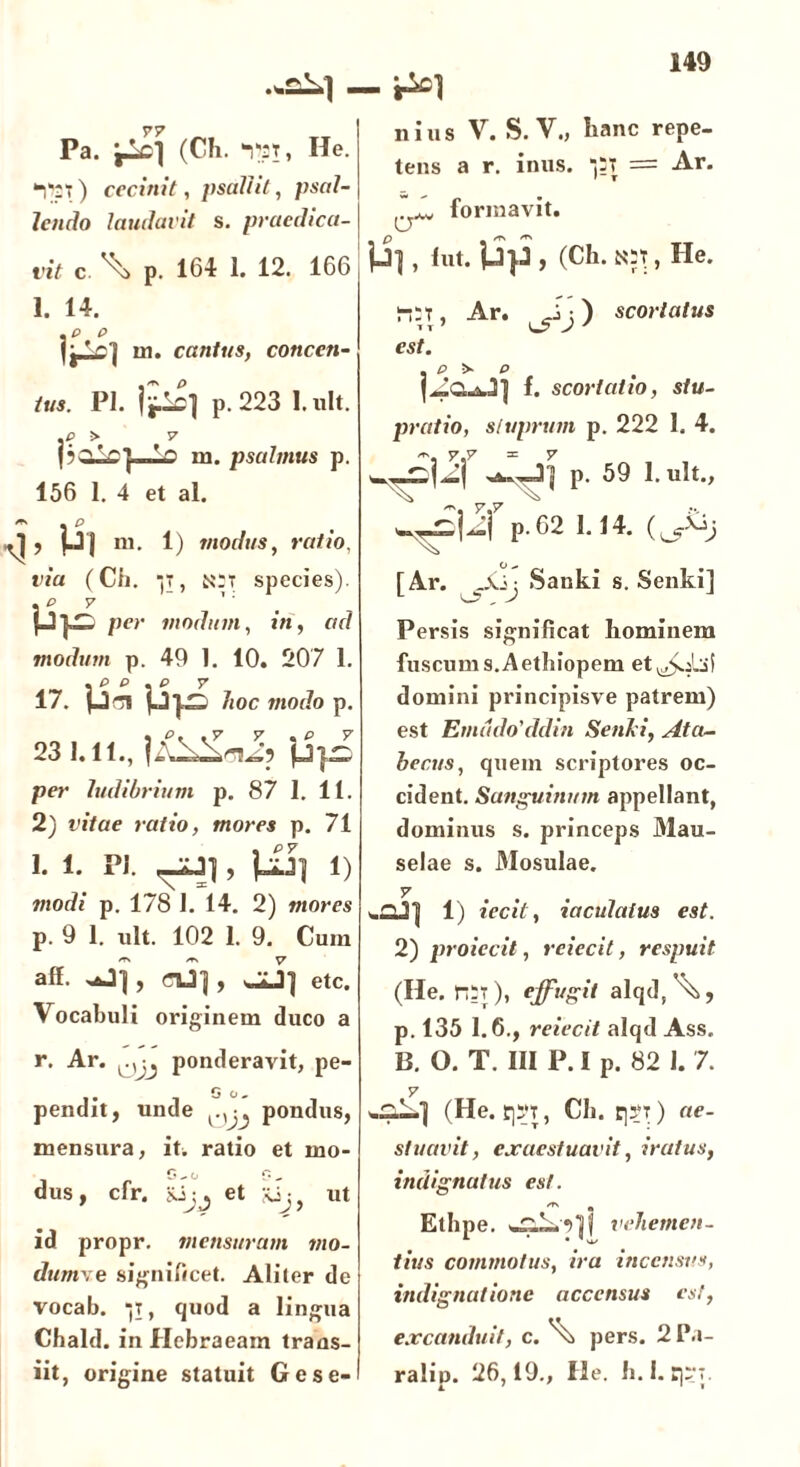 149
ܙܥܦ — ܙܡܪ
Pa. ܙܰܡܰܪ (Ch. זְמַר, He.
זָמַר) cecinit, psallit, psal-
lendo laudavit s. praedica-
vit c. ܠ p. 164 l. 12. 166
l. 14.
ܙܡܳܪܳܐ m. cantus, concen-
tus. Pl. p. 223 l. ult.
ܡܰܙܡܘܪܳܐ m. psalmus p.
156 l. 4 et al.
ܙܢ, ܙܢܳܐ m. 1) modus, ratio,
via (Ch. זַן, זְנָא species).
ܒܰܙܢܳܐ per modum, in, ad
modum p. 49 l. 10. 207 l.
17. ܒܰܙܢܳܐ ܗܳܢܳܐ hoc modo p.
23 l. 11.,
per ludibrium p. 87 l. 11.
2) vitae ratio, mores p. 71
l. 1. Pl. ܙܢܝܢ, ܙܢܰܝܳܐ 1)
modi p. 178 l. 14. 2) mores
p. 9 l. ult. 102 l. 9. Cum
aff. ܙܢܝ, ܙܢܗ, ܙܢܰܝ etc.
Vocabuli originem duco a
r. Ar. وَزَنَ ponderavit, pe-
pendit, unde وَزْنٌ pondus,
mensura, it. ratio et mo-
dus, cfr. وَزْنَةٌ et زِنَةٌ, ut
id propr. mensuram mo-
dumve significet. Aliter de
vocab. זַן, quod a lingua
Chald. in Hebraeam trans-
iit, origine statuit Gese-
nius V. S. V., hanc repe-
tens a r. inus. זָנַן = Ar.
formavit.
ܙܢܳܐ, fut. ܢܙܢܐ, (Ch. זְנָא, He.
זָנָה, Ar. زَنَى) scortatus
est.
ܙܳܢܝܘܬܳܐ f. scortatio, stu-
pratio, stuprum p. 222 l. 4.
p. 59 l. ult.,
p. 62 l. 14. (زنكى
[Ar. زَنْكِى Sanki s. Senki]
Persis significat hominem
fuscum s. Aethiopem et اتابك
domini principisve patrem)
est Emâdo'ddin Senki, Ata-
becus, quem scriptores oc-
cident. Sanguinum appellant,
dominus s. princeps Mau-
selae s. Mosulae.
ܙܢܰܩ 1) iecit, iaculatus est.
2) proiecit, reiecit, respuit
(He. זָנַח), effugit alqd, ܠ,
p. 135 l. 6., reiecit alqd Ass.
B. O. T. III P. I p. 82 l. 7.
ܙܥܰܦ (He. זָעַף, Ch. זְעַף) ae-
stuavit, exaestuavit, iratus,
indignatus est.
Ethpe. ܐܙܕܥܦ vehemen-
tius commotus, ira incensus,
indignatione accensus est,
excanduit, c. ܠ pers. 2 Pa-
ralip. 26, 19., He. h. l. זָעַף.